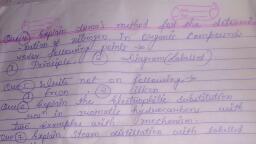 Que(4) Explain duma's method for the determi-
nation of nitrogen In organic compounds
under following points :-
(1) Principle (2) Diagram (Labelled)
Que(5) Write not on following :-
(1) Freon (2) Silicon
Que(6) Explain the Electrophilic substitution
rxn in aromatic hydrocarbons with
two examples with mechanism.
Que(7) Explain Steam distillation with labelled